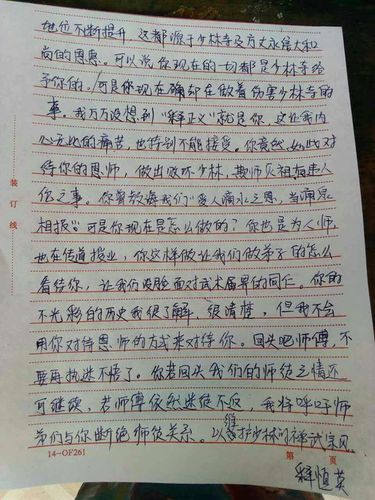 地位不断提升，这都源于少林寺及方丈永信大和
尚的恩惠。可以说你现在的一切都是少林寺给
予你的。可是你现在确却在做着伤害少林寺的
事。我万万没想到“释正义”就是你，这让我内
心无比的痛苦，也特别不能接受。你竟然如此对
待你的恩师，做出败坏少林，欺师灭祖丢人
之事。你曾教导我们“受人滴水之恩，当涌泉
相报”可是你现在是怎么做的？你也是为人师，
也在传道授业，你这样做让我们做弟子的怎么
看待你，让我们没脸面对武术届的同仁。你的
不光彩的历史我很了解，很清楚，但我不会
用你对待恩师的方式来对待你。回头吧师傅，不
要再执迷不悟了。你若回头我们的师徒之情还
可继续，若师傅依然迷途不反，我将呼吁师
弟们与你断绝师徒关系。以维护少林的禅武宗风。
装订线
14-OF261
第 页
释恒英